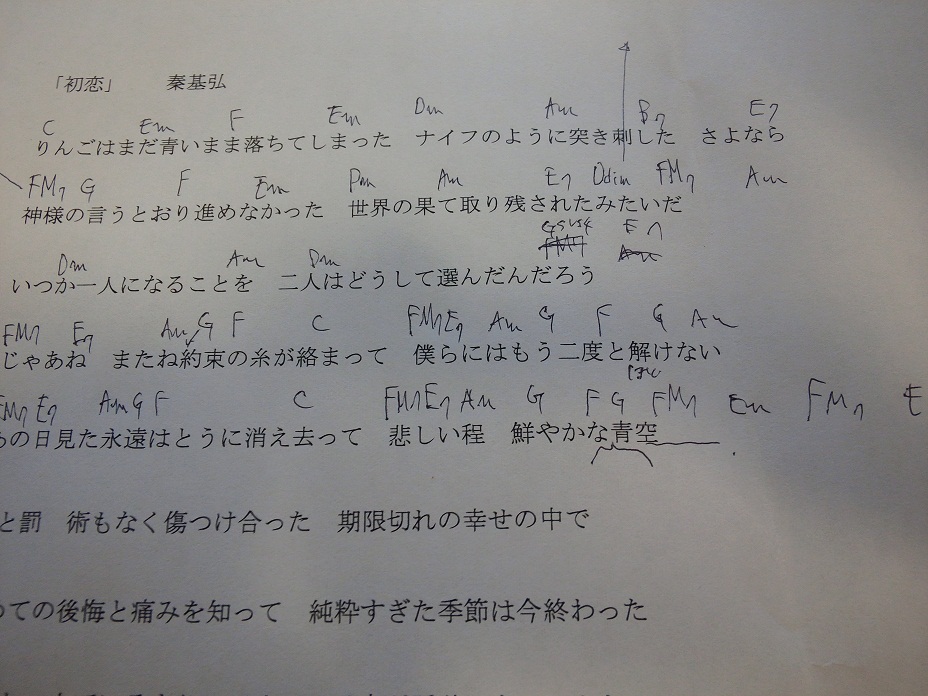 「初恋」 秦基弘
C Em F Em Dm Am B7 E7
りんごはまだ青いまま落ちてしまった ナイフのように突き刺した さよなら
FM7 G F Em Dm Am E7 Ddim FM7 Am
神様の言うとおり進めなかった 世界の果て取り残されたみたいだ
Gsus4 E7
Dm Am Dm FM7 Am
いつか一人になることを 二人はどうして選んだんだろう
FM7 E7 Am G F C FM7 E7 Am G F G Am
じゃあね またね約束の糸が絡まって 僕らにはもう二度と解けない
ほど
FM7 E7 Am G F C FM7 E7 Am G F G FM7 Em FM7 E
の日見た永遠はとうに消え去って 悲しい程 鮮やかな青空
と罰 術もなく傷つけ合った 期限切れの幸せの中で
ての後悔と痛みを知って 純粋すぎた季節は今終わった